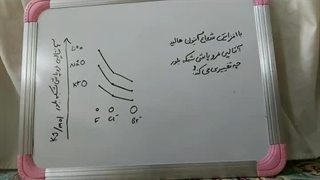 با افزایش شعاع آنیون هالید
آنتالپی فروپاشی شبکه بلور
چه تغییری می کند؟
آنتالپی فروپاشی شبکه بلور
kJ/mol
Li⁺
Na⁺
K⁺
F⁻ Cl⁻ Br⁻